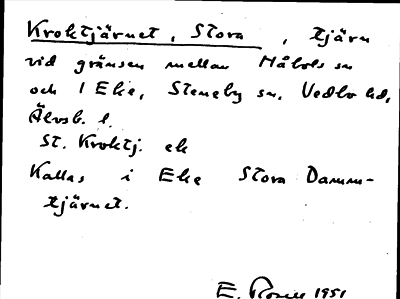 Kroktjärnet, Stora, tjärn
vid gränsen mellan Håbols sn
och 1 Eke, Steneby sn, Vedbo hd,
Älvsb. l.
St. Kroktj. ek
Kallas i Eke Stora Damm-
tjärnet.
E. Rosell 1951